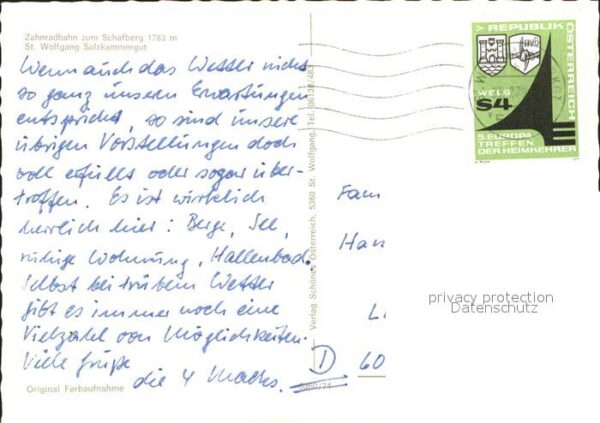 Zahnradbahn zum Schafberg 1783 m
St. Wolfgang Salzkammergut
Wenn auch das Wetter nicht
so ganz unseren Erwartungen
entspricht, so sind unsere
übrigen Vorstellungen doch
voll erfüllt oder sogar über-
troffen. Es ist wirklich
herrlich hier: Berge, See,
ruhige Wohnung, Hallenbad.
Selbst bei trübem Wetter
gibt es immer noch eine
Vielzahl von Möglichkeiten.
Viele Grüße
die 4 Machs.
Original Farbaufnahme
Verlag Schönes Österreich, 5360 St. Wolfgang, Tel.
REPUBLIK
ÖSTERREICH
WELS
S4
5. EUROPA
TREFFEN
DER HEIMKEHRER
Fam
Han
L.
D 60
privacy protection
Datenschutz